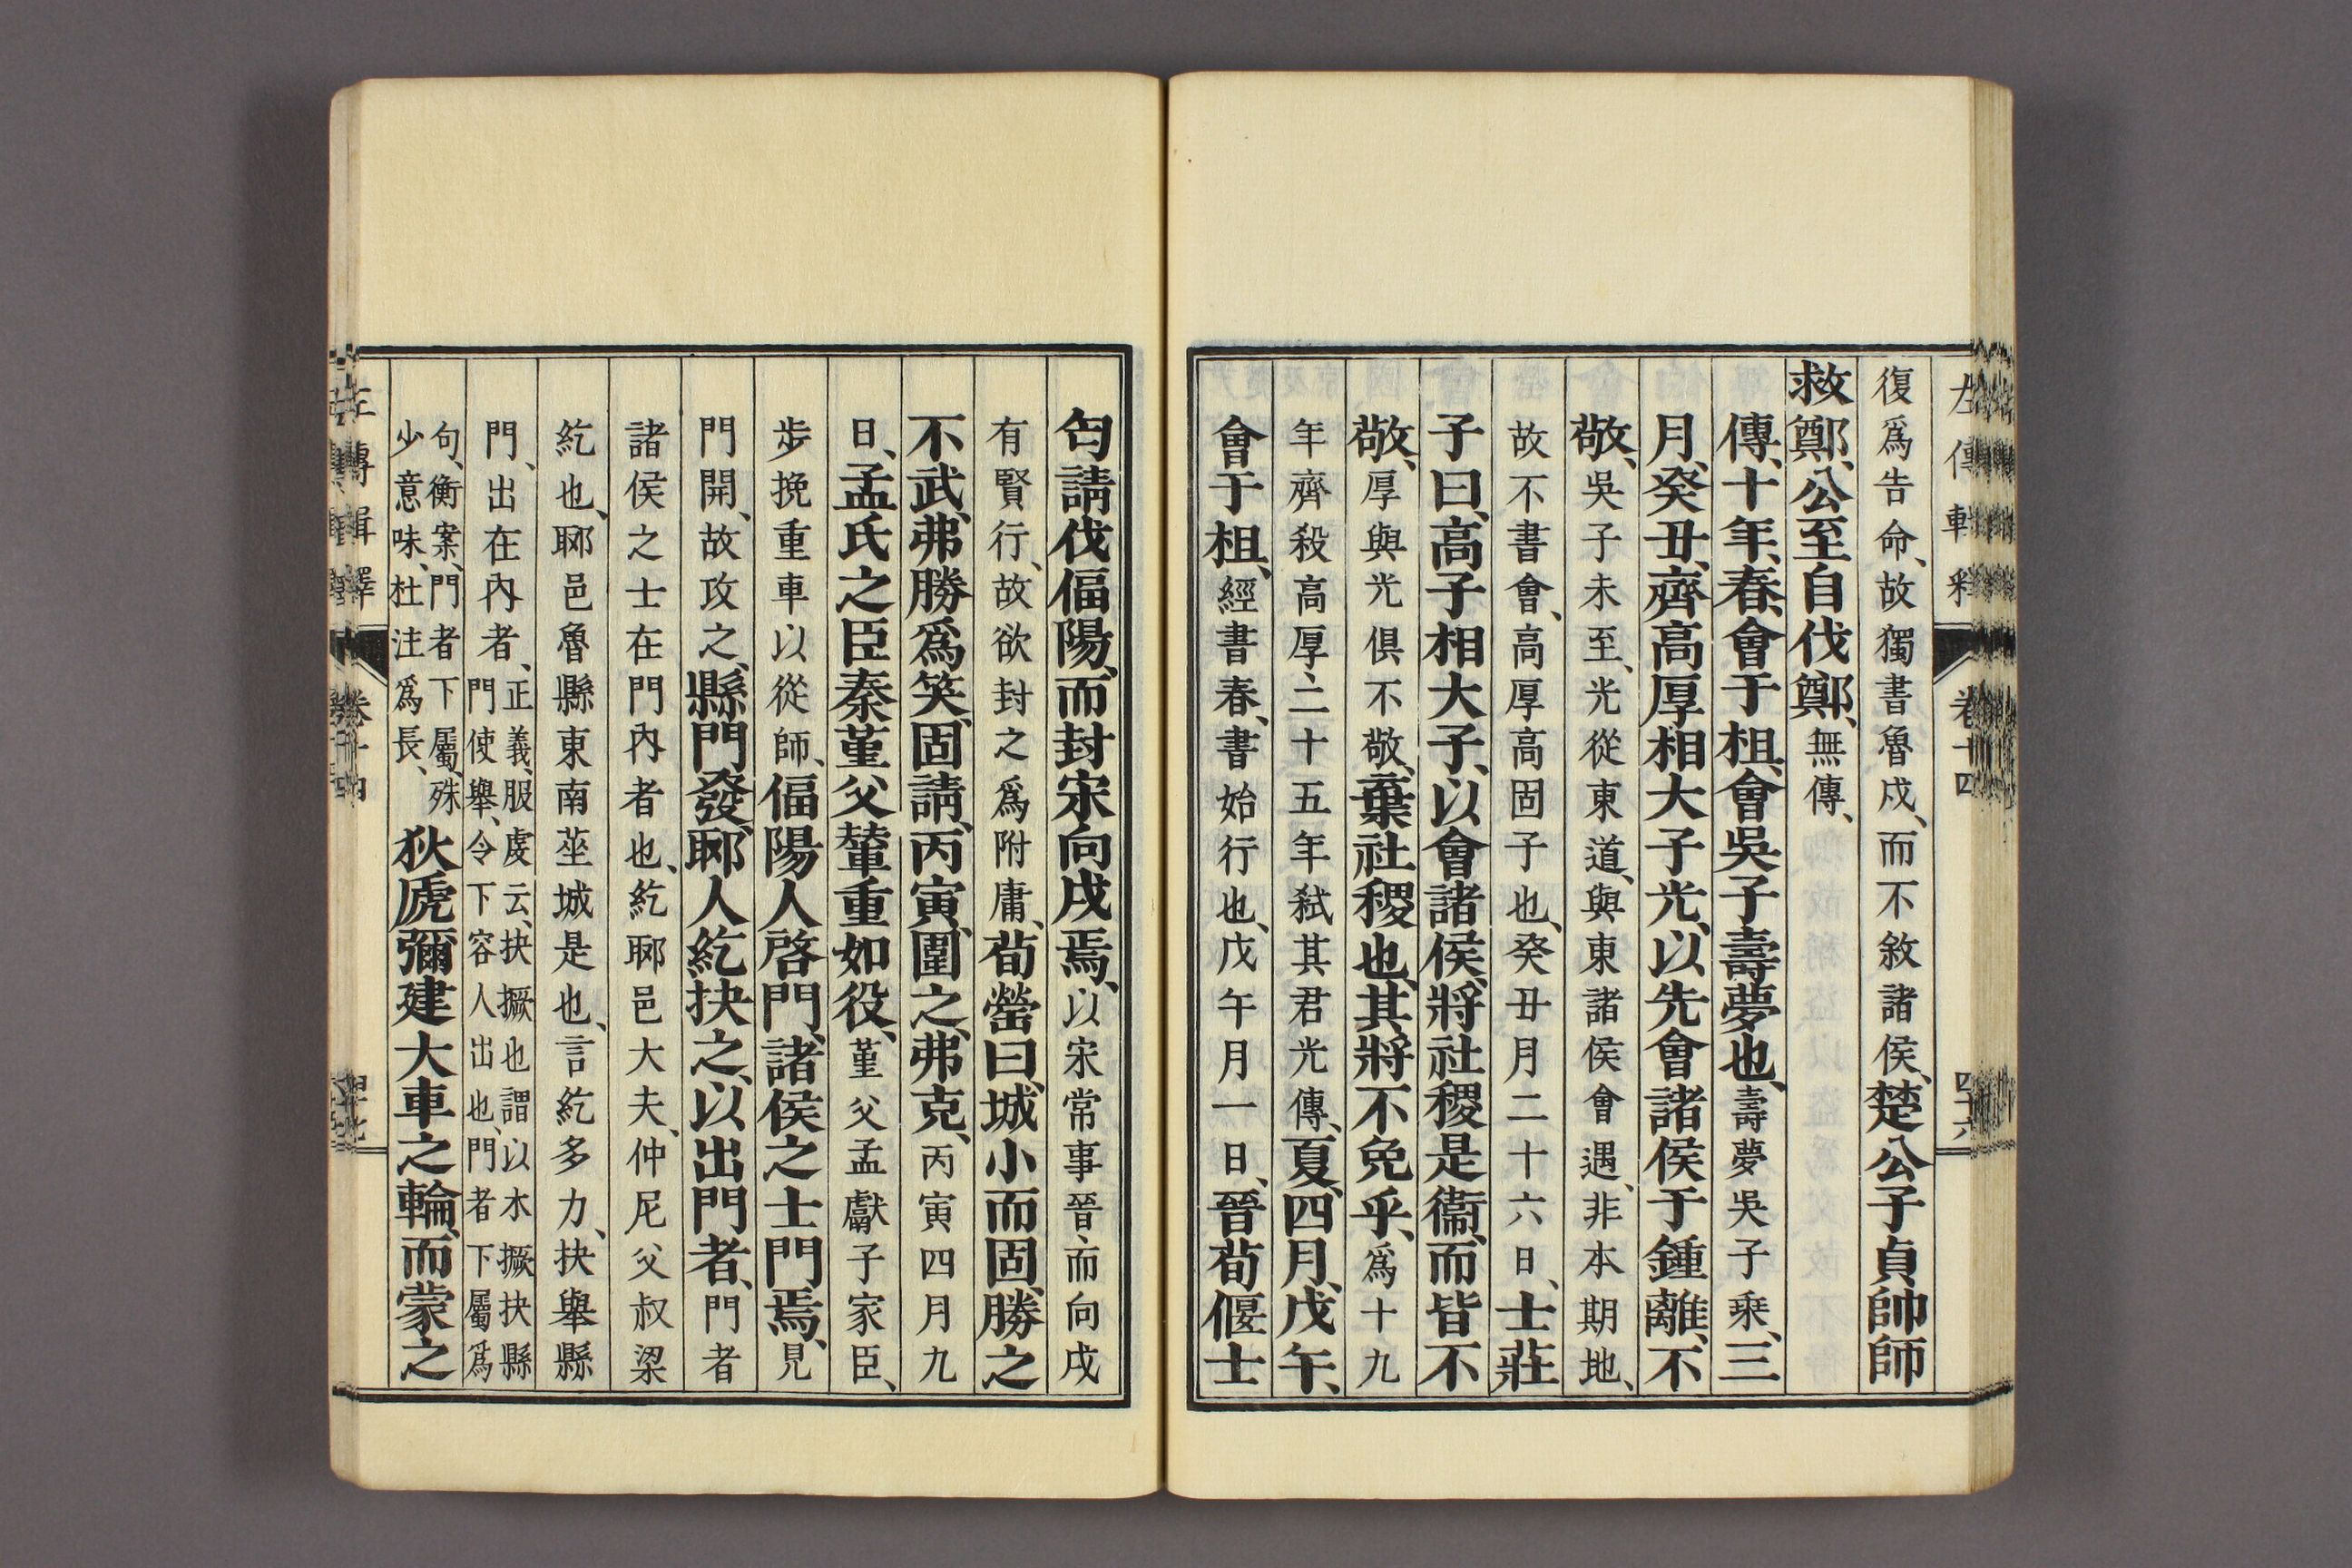 左傳輯釋 卷十四 四十六
復爲告命、故獨書魯戍、而不敘諸侯、楚公子貞帥師
救鄭、公至自伐鄭、無傳、
傳、十年、春、會于柤、會吳子壽夢也、壽夢吳子乘、三
月、癸丑、齊高厚相大子光、以先會諸侯于鍾離、不
敬、吳子未至、光從東道、與東諸侯會遇、非本期地、
故不書會、高厚高固子也、癸丑月二十六日、士莊
子曰、高子相大子、以會諸侯、將社稷是衞、而皆不
敬、厚與光俱不敬、棄社稷也、其將不免乎、爲十九
年齊殺高厚、二十五年弒其君光傳、夏、四月、戊午、
會于柤、經書春、書始行也、戊午月一日、晉荀偃士
匄請伐偪陽、而封宋向戌焉、以宋常事晉、而向戌
有賢行、故欲封之爲附庸、荀罃曰、城小而固、勝之
不武、弗勝爲笑、固請、丙寅、圍之、弗克、丙寅四月九
日、孟氏之臣秦堇父輦重如役、堇父孟獻子家臣、
步挽重車以從師、偪陽人啓門、諸侯之士門焉、見
門開、故攻之、縣門發、郰人紇抉之、以出門者、門者
諸侯之士在門內者也、紇郰邑大夫、仲尼父叔梁
紇也、郰邑魯縣東南莝城是也、言紇多力、抉舉縣
門、出在內者、正義、服虔云、抉撅也謂以木撅抉縣
門使舉、令下容人出也、門者下屬爲
句、衡案、門者下屬、殊
少意味、杜注爲長、狄虒彌建大車之輪、而蒙之
左傳輯釋 卷十四